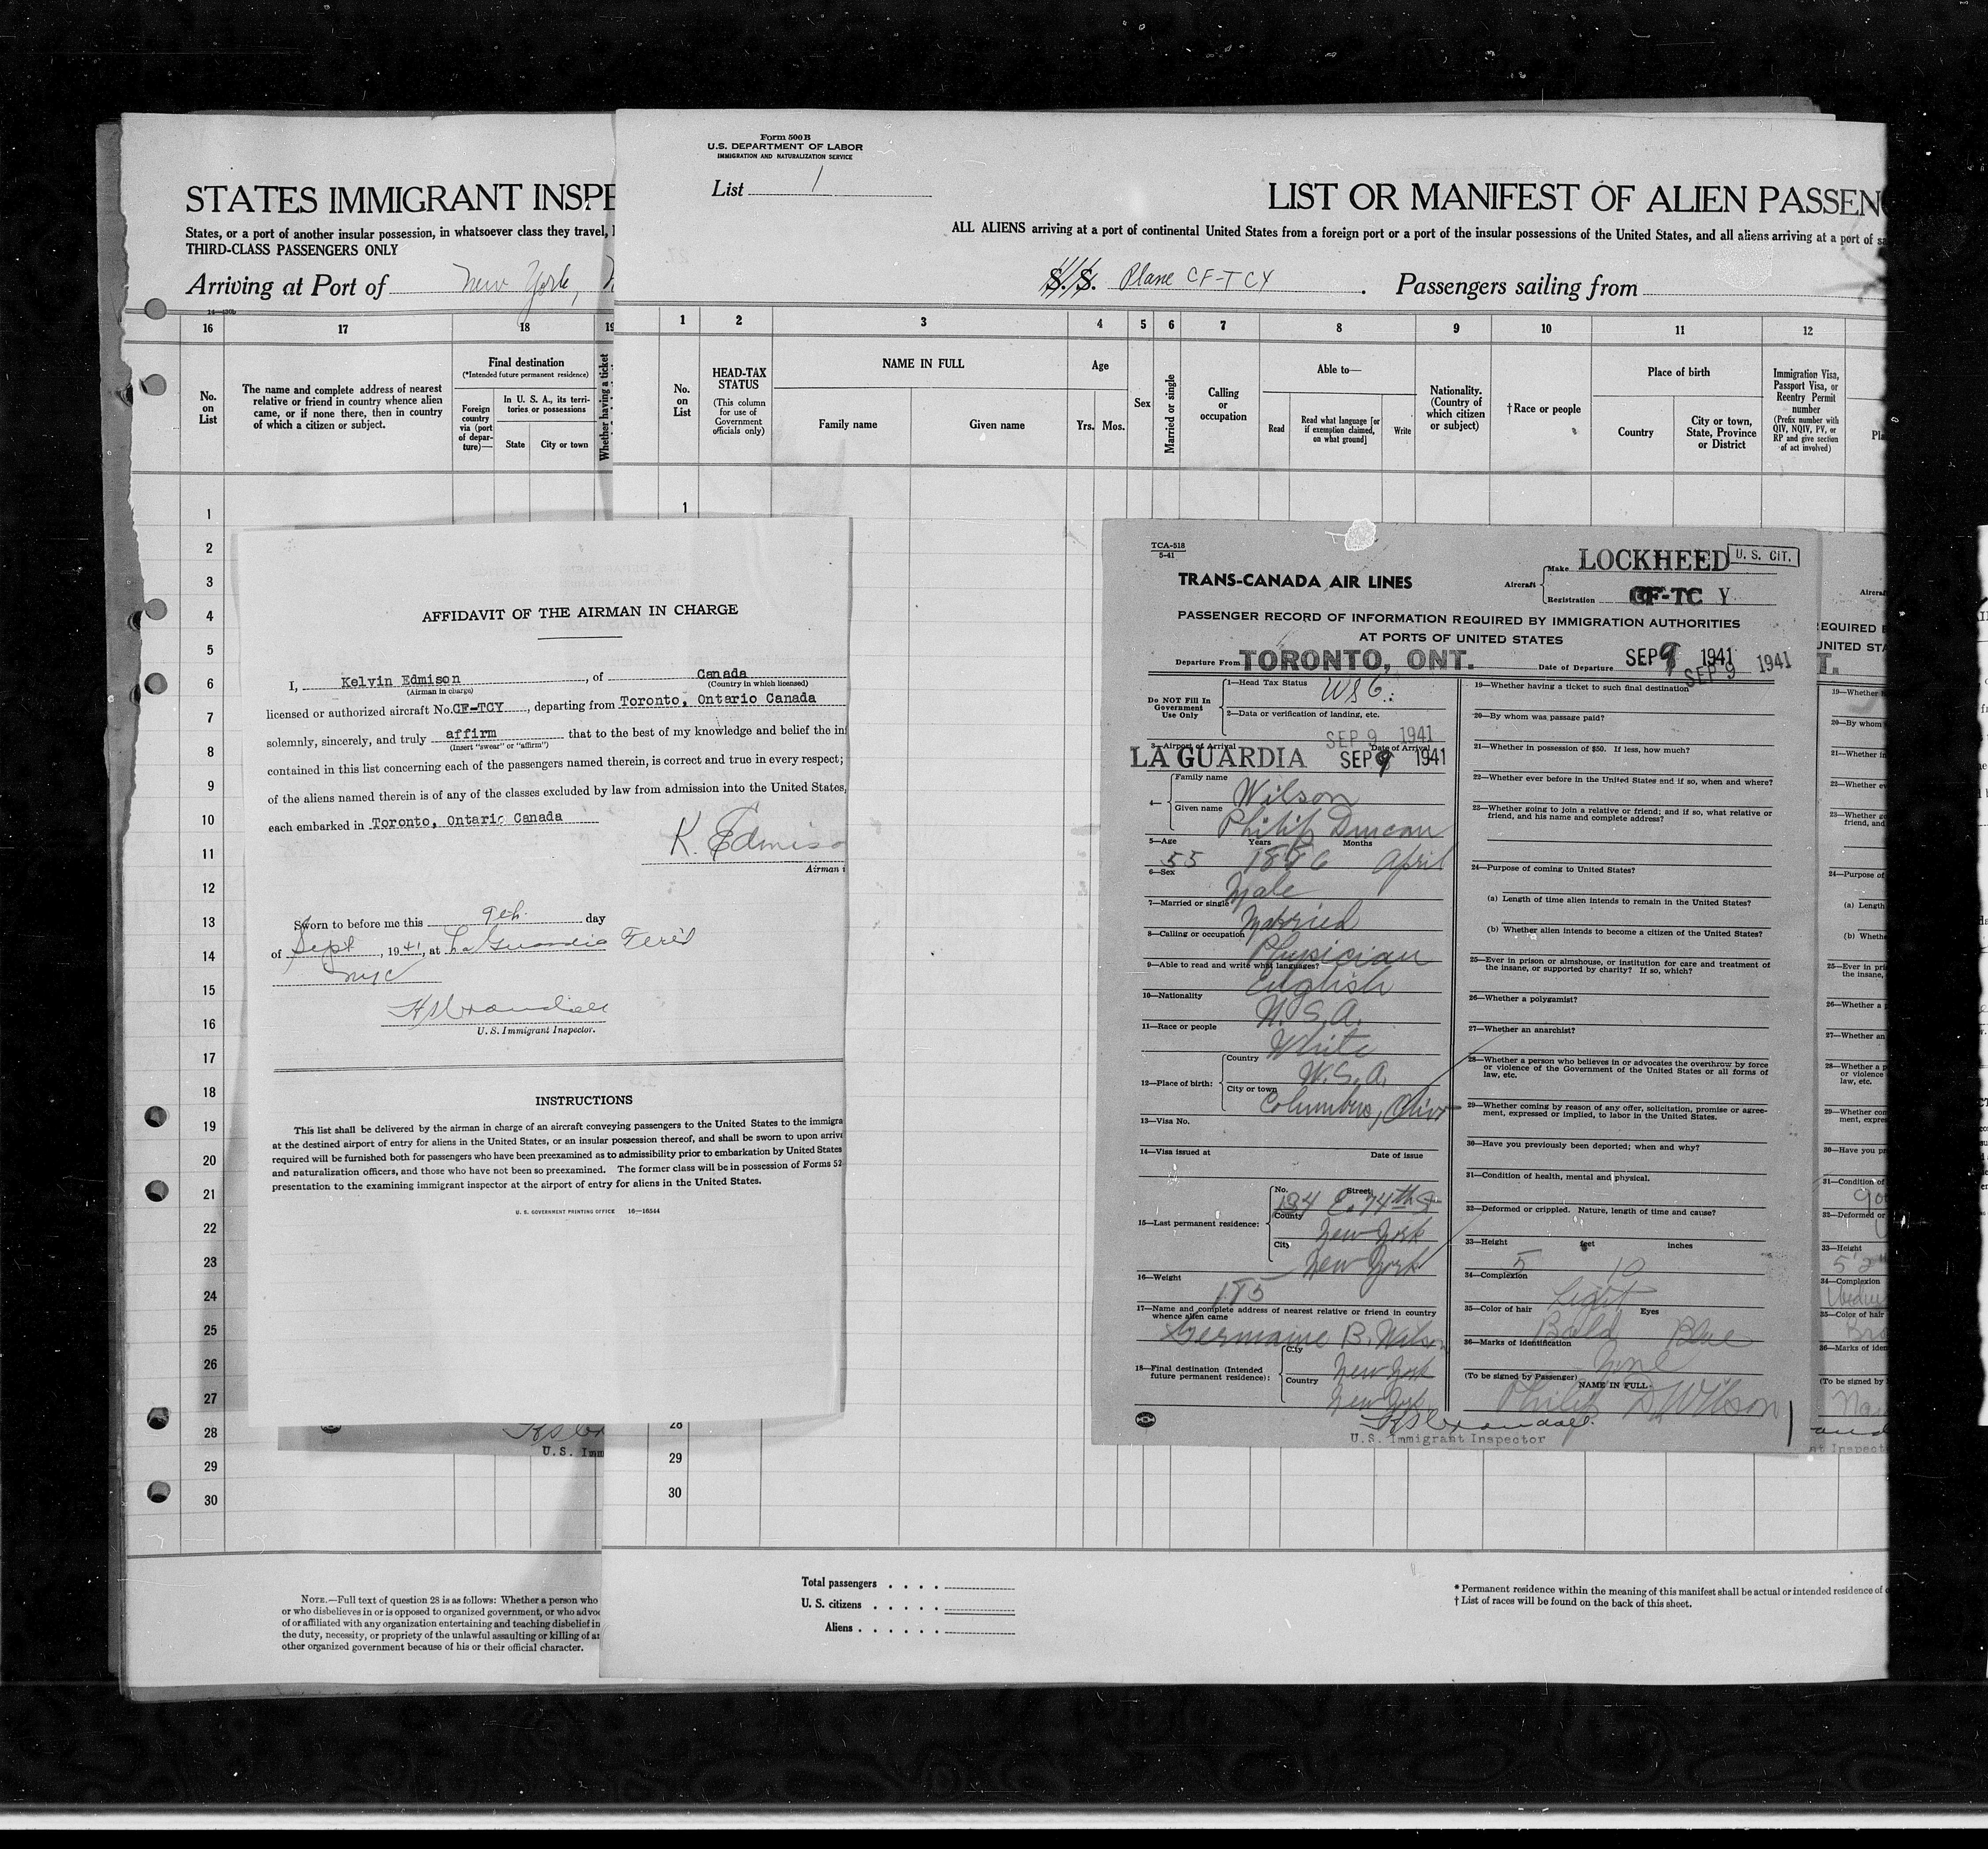 STATES IMMIGRANT INSPE
States, or a port of another insular possession, in whatsoever class they travel,
THIRD-CLASS PASSENGERS ONLY
Arriving at Port of New York,
16—430b
16 17 18 19
No. on List
The name and complete address of nearest
relative or friend in country whence alien
came, or if none there, then in country
of which a citizen or subject.
Final destination
(*Intended future permanent residence)
Foreign
country
via (port
of depar-
ture)—
In U. S. A., its terri-
tories or possessions
State City or town
Whether having a ticket
1
2
3
4
5
6
7
8
9
10
11
12
13
14
15
16
17
18
19
20
21
22
23
24
25
26
27
28
29
30
U.S. Imm
NOTE.—Full text of question 28 is as follows: Whether a person who
or who disbelieves in or is opposed to organized government, or who advoc
of or affiliated with any organization entertaining and teaching disbelief in
the duty, necessity, or propriety of the unlawful assaulting or killing of an
other organized government because of his or their official character.
Form 500 B
U.S. DEPARTMENT OF LABOR
IMMIGRATION AND NATURALIZATION SERVICE
List 1
LIST OR MANIFEST OF ALIEN PASSEN
ALL ALIENS arriving at a port of continental United States from a foreign port or a port of the insular possessions of the United States, and all aliens arriving at a port of sa
S. S. Plane CF-TCY. Passengers sailing from
1 2 3 4 5 6 7 8 9 10 11 12
No. on List
HEAD-TAX
STATUS
(This column
for use of
Government
officials only)
NAME IN FULL
Family name Given name
Age
Yrs. Mos.
Sex
Married or single
Calling
or
occupation
Able to—
Read
Read what language [or
if exemption claimed,
on what ground]
Write
Nationality.
(Country of
which citizen
or subject)
†Race or people
Place of birth
Country
City or town,
State, Province
or District
Immigration Visa,
Passport Visa, or
Reentry Permit
number
(Prefix number with
QIV, NQIV, PV, or
RP and give section
of act involved)
Pla
1
28
29
30
Total passengers . . . .
U. S. citizens . . . . .
Aliens . . . . . .
* Permanent residence within the meaning of this manifest shall be actual or intended residence of
† List of races will be found on the back of this sheet.
AFFIDAVIT OF THE AIRMAN IN CHARGE
I, Kelvin Edmison, of Canada
(Airman in charge) (Country in which licensed)
licensed or authorized aircraft No. CF-TCY, departing from Toronto, Ontario Canada
solemnly, sincerely, and truly affirm that to the best of my knowledge and belief the in
(Insert "swear" or "affirm")
contained in this list concerning each of the passengers named therein, is correct and true in every respect;
of the aliens named therein is of any of the classes excluded by law from admission into the United States,
each embarked in Toronto, Ontario Canada
K. Edmiso
Airman i
Sworn to before me this 9th day
of Sept, 1941, at La Guardia Field
NYC
U. S. Immigrant Inspector.
INSTRUCTIONS
This list shall be delivered by the airman in charge of an aircraft conveying passengers to the United States to the immigra
at the destined airport of entry for aliens in the United States, or an insular possession thereof, and shall be sworn to upon arriva
required will be furnished both for passengers who have been preexamined as to admissibility prior to embarkation by United States
and naturalization officers, and those who have not been so preexamined. The former class will be in possession of Forms 52
presentation to the examining immigrant inspector at the airport of entry for aliens in the United States.
U. S. GOVERNMENT PRINTING OFFICE 16—16544
TCA-518
5-41
TRANS-CANADA AIR LINES
Aircraft
Make LOCKHEED
Registration CF-TC Y
U. S. CIT.
PASSENGER RECORD OF INFORMATION REQUIRED BY IMMIGRATION AUTHORITIES
AT PORTS OF UNITED STATES
Departure From TORONTO, ONT. Date of Departure SEP 9 1941
SEP 9 1941
Do NOT Fill In
Government
Use Only
1—Head Tax Status USC.
2—Data or verification of landing, etc.
SEP 9 1941
3—Airport of Arrival Date of Arrival
LA GUARDIA SEP 9 1941
4— Family name Wilson
Given name Philip Duncan
5—Age Years Months
55 1886 April
6—Sex Male
7—Married or single Married
8—Calling or occupation Physician
9—Able to read and write what languages? English
10—Nationality U.S.A.
11—Race or people White
12—Place of birth: Country U.S.A.
City or town Columbus, Ohio
13—Visa No.
14—Visa issued at Date of issue
15—Last permanent residence: No. Street 134 E. 74th St
County New York
City New York
16—Weight 185
17—Name and complete address of nearest relative or friend in country
whence alien came
Germaine B. Wilson
18—Final destination (Intended
future permanent residence): City New York
Country New York
19—Whether having a ticket to such final destination
20—By whom was passage paid?
21—Whether in possession of $50. If less, how much?
22—Whether ever before in the United States and if so, when and where?
23—Whether going to join a relative or friend; and if so, what relative or
friend, and his name and complete address?
24—Purpose of coming to United States?
(a) Length of time alien intends to remain in the United States?
(b) Whether alien intends to become a citizen of the United States?
25—Ever in prison or almshouse, or institution for care and treatment of
the insane, or supported by charity? If so, which?
26—Whether a polygamist?
27—Whether an anarchist?
28—Whether a person who believes in or advocates the overthrow by force
or violence of the Government of the United States or all forms of
law, etc.
29—Whether coming by reason of any offer, solicitation, promise or agree-
ment, expressed or implied, to labor in the United States.
30—Have you previously been deported; when and why?
31—Condition of health, mental and physical.
32—Deformed or crippled. Nature, length of time and cause?
33—Height feet inches
5 10
34—Complexion Light
35—Color of hair Bald Eyes Blue
36—Marks of identification None
(To be signed by Passenger) NAME IN FULL
Philip D. Wilson
U.S. Immigrant Inspector
Aircraf
EQUIRED B
UNITED STA
T.
19—Whether
20—By whom
21—Whether in
22—Whether ev
23—Whether go
friend, and
24—Purpose of
(a) Length
(b) Whethe
25—Ever in pri
the insane,
26—Whether a p
27—Whether an
28—Whether a p
or violence
law, etc.
29—Whether com
ment, expres
30—Have you pr
31—Condition of
32—Deformed or
33—Height
5'2"
34—Complexion
35—Color of hair
Bro
36—Marks of iden
(To be signed by
nt Inspect